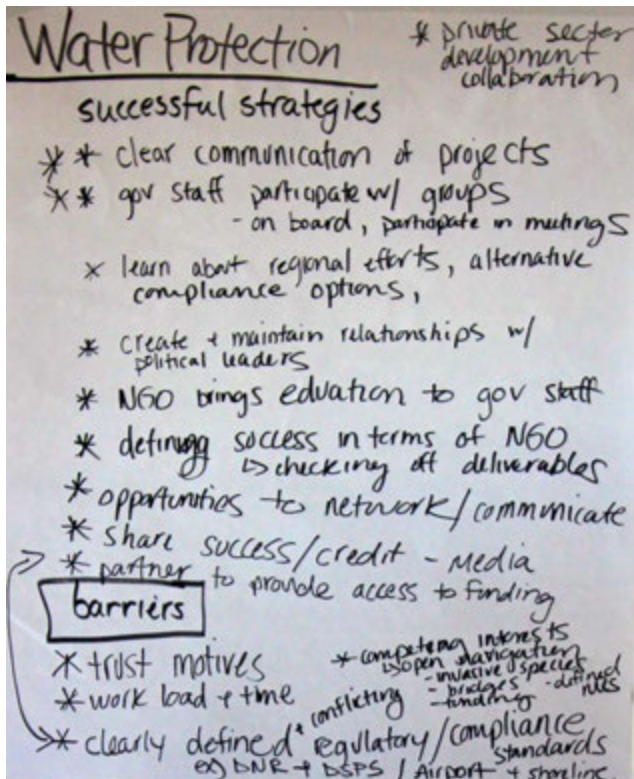 Water Protection
* private sector
development
collaboration
successful strategies
* * clear communication of projects
* * gov staff participate w/ groups
- on board, participate in meetings
* learn about regional efforts, alternative
compliance options,
* create + maintain relationships w/
political leaders
* NGO brings eduation to gov staff
* defining success in terms of NGO
↳ checking off deliverables
* opportunities to network/communicate
* share success/credit - media
* partner to provide access to funding
barriers
* trust motives
* work load + time
* competing interests
↳ open navigation
- invasive species
- bridges - defined
- funding rules
* clearly defined + conflicting regulatory/compliance
standards
ex) DNR + DSPS / Airport + shoreline